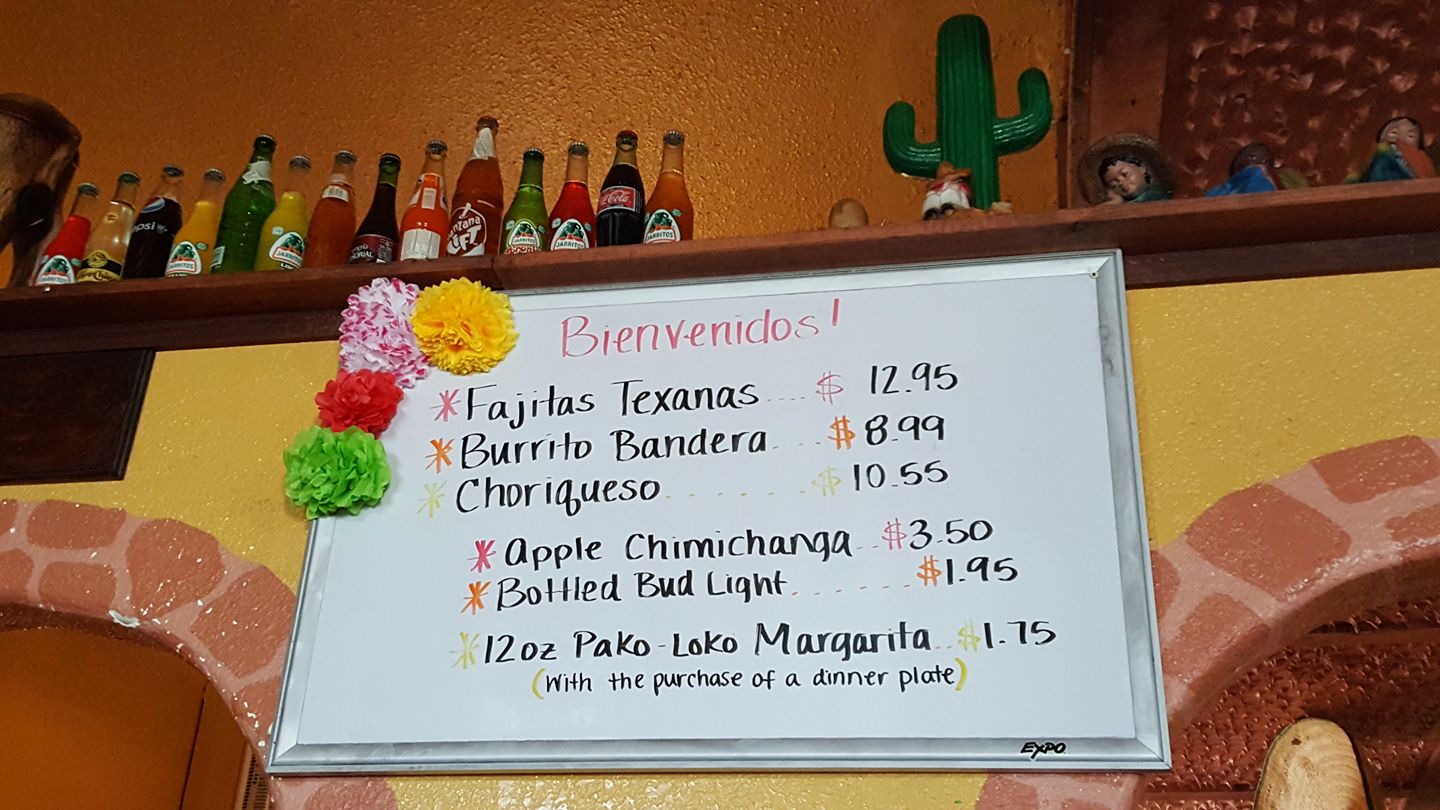 JARRITOS
pepsi
JARRITOS
JARRITOS
JARRITOS
Coca-Cola
JARRITOS
Bienvenidos!
*Fajitas Texanas....$ 12.95
*Burrito Bandera. ...$8.99
*Choriqueso.......$10.55
*Apple Chimichanga..$3.50
*Bottled Bud Light......$1.95
*12oz Pako-Loko Margarita..$1.75
(With the purchase of a dinner plate)
EXPO